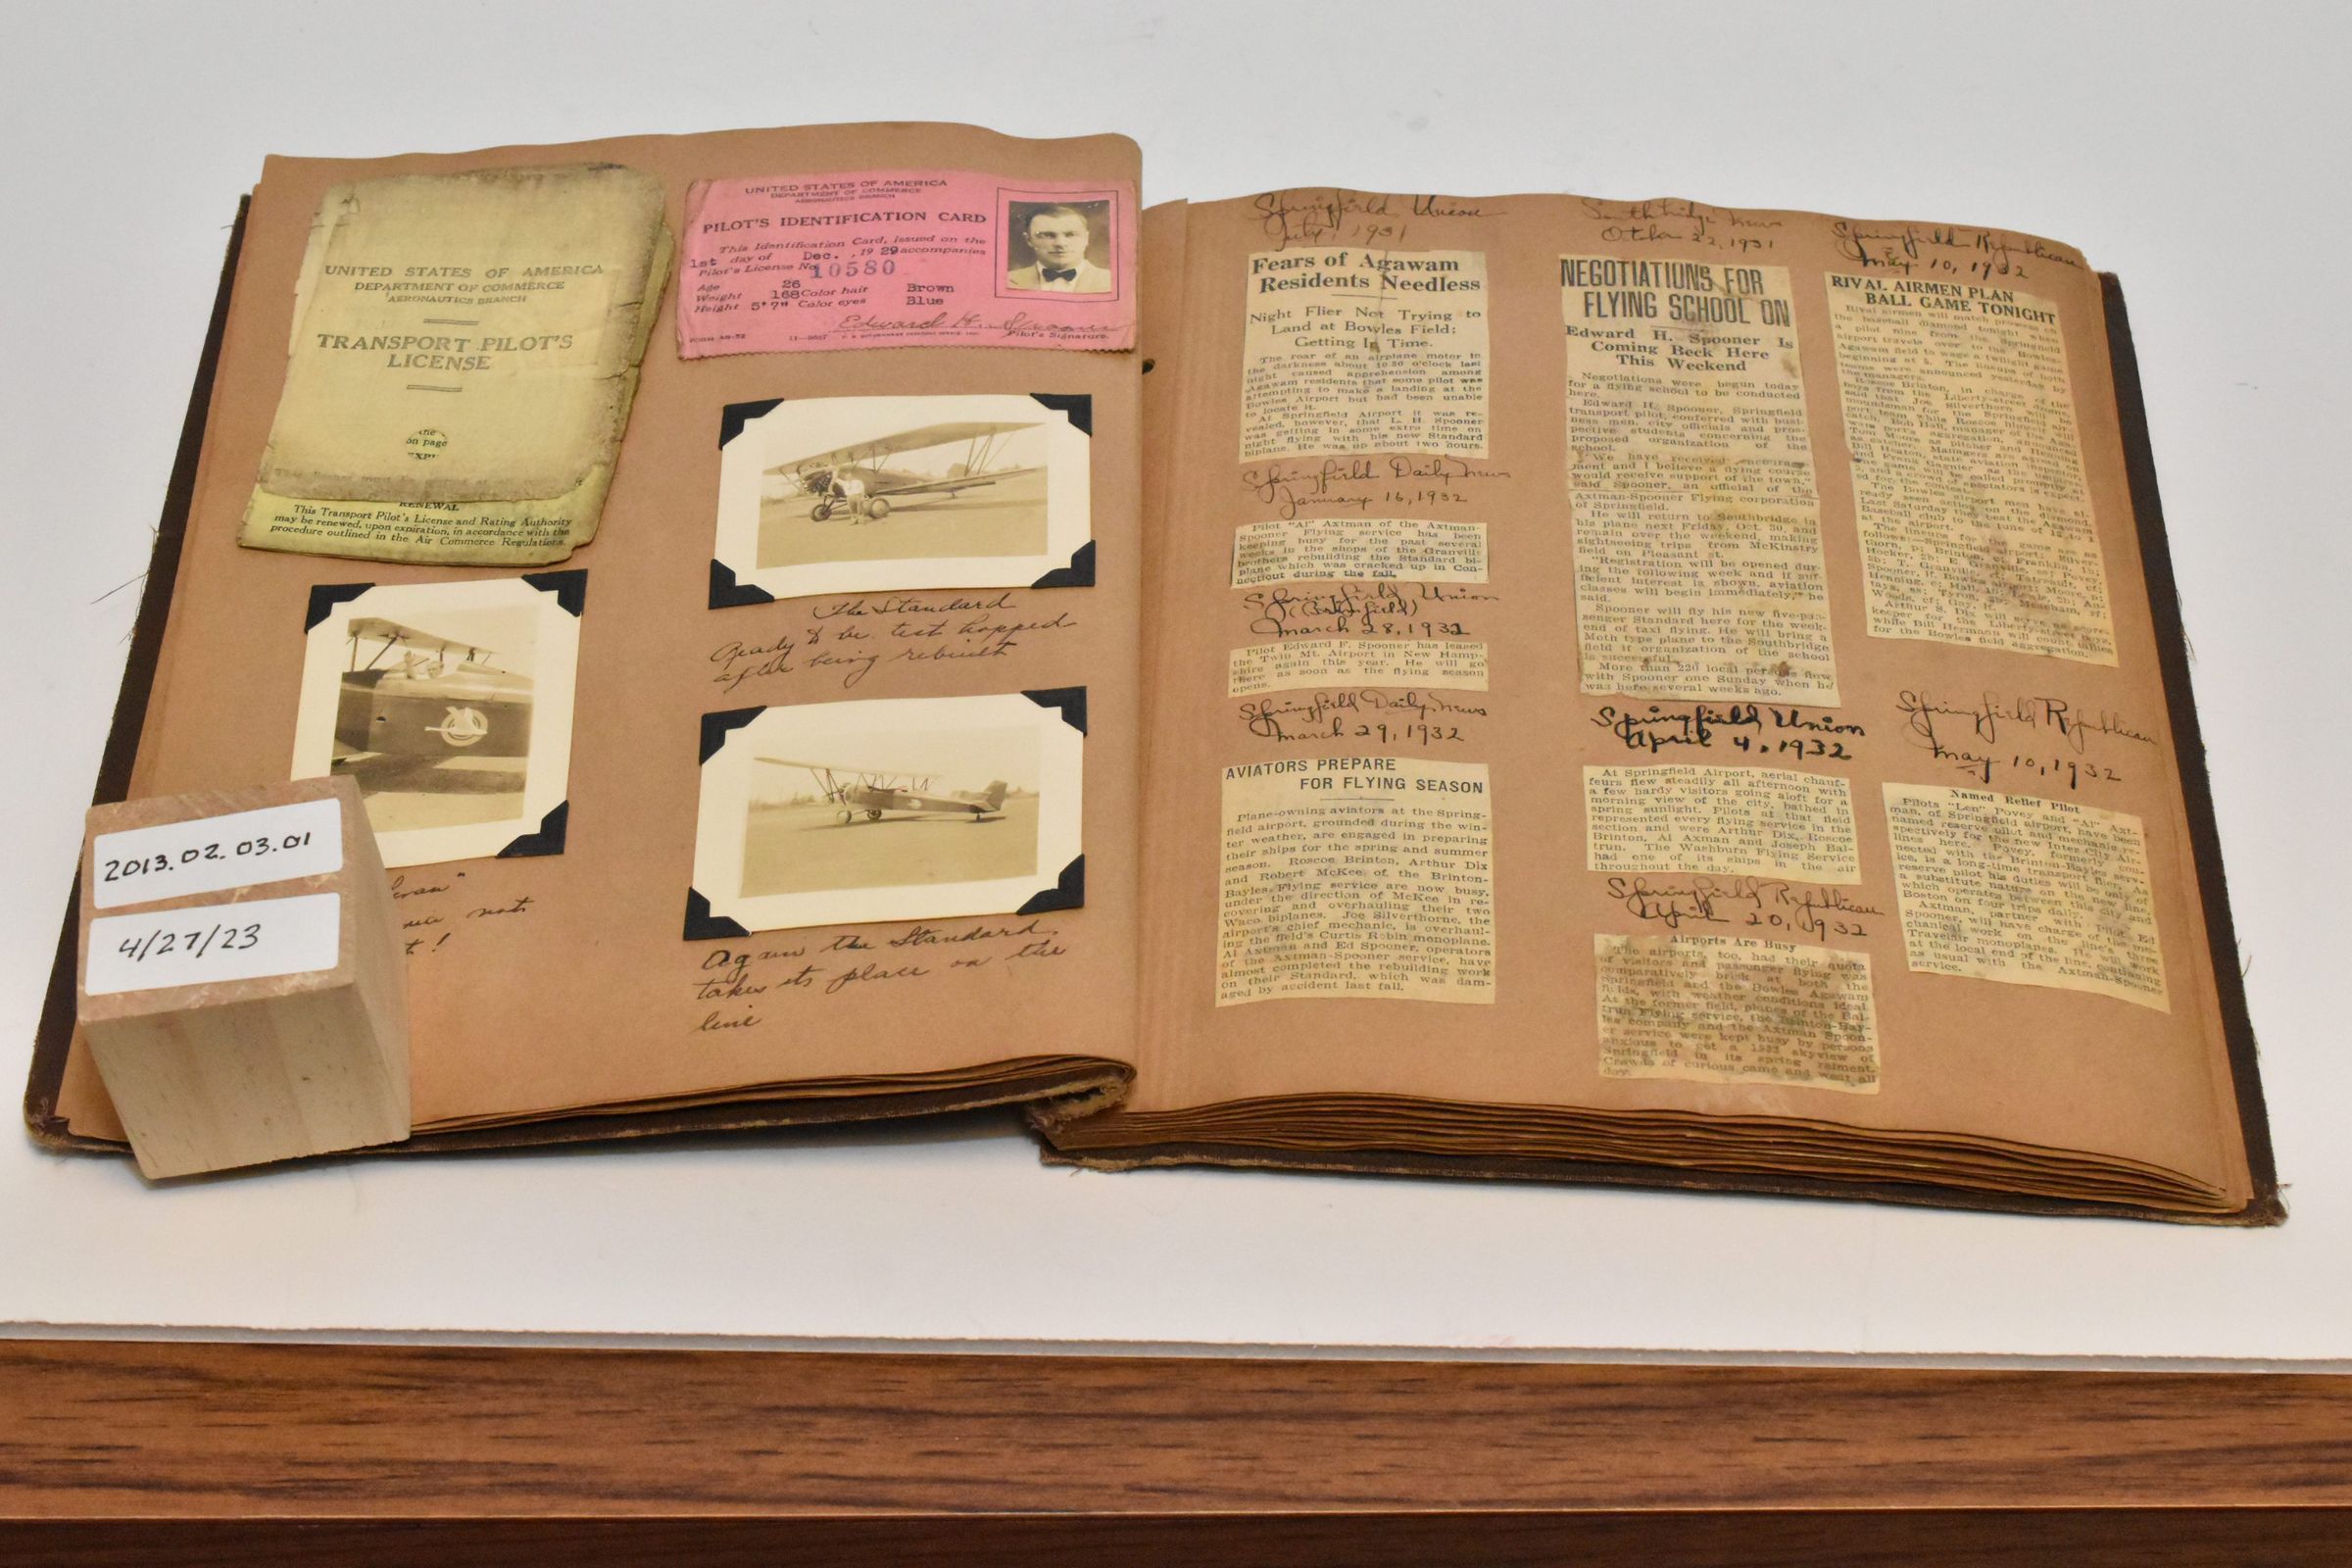 UNITED STATES OF AMERICA
DEPARTMENT OF COMMERCE
AERONAUTICS BRANCH
TRANSPORT PILOT'S
LICENSE
the
on page
EXP
RENEWAL
This Transport Pilot's License and Rating Authority
may be renewed, upon expiration, in accordance with the
procedure outlined in the Air Commerce Regulations.
UNITED STATES OF AMERICA
DEPARTMENT OF COMMERCE
AERONAUTICS BRANCH
PILOT'S IDENTIFICATION CARD
This Identification Card, issued on the
1st day of Dec., 1929 accompanies
Pilot's License No. 10580
Age 26
Weight 168 Color hair Brown
Height 5'7" Color eyes Blue
Edward H. Spooner
Pilot's Signature.
The Standard
Ready to be test hopped
after being rebuilt
Again the Standard
takes its place on the
line
not
t!
2013.02.03.01
4/27/23
Springfield Union
July, 1931
Fears of Agawam
Residents Needless
Night Flier Not Trying to
Land at Bowles Field;
Getting In Time.
The roar of an airplane motor in
the darkness about 10.30 o'clock last
night caused apprehension among
Agawam residents that some pilot was
attempting to make a landing at the
Bowles Airport but had been unable
to locate it.
At Springfield Airport it was re-
vealed, however, that L. H. Spooner
was getting in some extra time on
night flying with his new Standard
biplane. He was up about two hours.
Springfield Daily News
January 16, 1932
Pilot "Al" Axtman of the Axtman-
Spooner Flying service has been
keeping busy for the past several
weeks in the shops of the Granville
brothers rebuilding the Standard bi-
plane which was cracked up in Con-
necticut during the fall.
Springfield Union
March 28, 1932
Pilot Edward F. Spooner has leased
the Twin Mt. Airport in New Hamp-
shire again this year. He will go
there as soon as the flying season
opens.
Springfield Daily News
March 29, 1932
AVIATORS PREPARE
FOR FLYING SEASON
Plane-owning aviators at the Spring-
field airport, grounded during the win-
ter weather, are engaged in preparing
their ships for the spring and summer
season. Roscoe Brinton, Arthur Dix
and Robert McKee of the Brinton-
Bayles Flying service are now busy,
under the direction of McKee in re-
covering and overhauling their two
Waco biplanes. Joe Silverthorne, the
airport's chief mechanic, is overhaul-
ing the field's Curtis Robin monoplane.
Al Axtman and Ed Spooner, operators
of the Axtman-Spooner service, have
almost completed the rebuilding work
on their Standard, which was dam-
aged by accident last fall.
Southbridge News
October 22, 1931
NEGOTIATIONS FOR
FLYING SCHOOL ON
Edward H. Spooner Is
Coming Beck Here
This Weekend
Negotiations were begun today
for a flying school to be conducted
here.
Edward H. Spooner, Springfield
transport pilot, conferred with busi-
ness men, city officials and pros-
pective students concerning the
proposed organization of the
school.
"We have received encourage-
ment and I believe a flying course
would receive support of the town,"
said Spooner, an official of the
Axtman-Spooner Flying corporation
of Springfield.
He will return to Southbridge in
his plane next Friday, Oct. 30, and
remain over the weekend, making
sightseeing trips from McKinstry
field on Pleasant st.
"Registration will be opened dur-
ing the following week and if suf-
ficient interest is shown, aviation
classes will begin immediately," he
said.
Spooner will fly his new five-pas-
senger Standard here for the week-
end of taxi flying. He will bring a
Moth type plane to the Southbridge
field if organization of the school
is successful.
More than 220 local persons flew
with Spooner one Sunday when he
was here several weeks ago.
Springfield Union
April 4, 1932
At Springfield Airport, aerial chauf-
feurs flew steadily all afternoon with
a few hardy visitors going aloft for a
morning view of the city, bathed in
spring sunlight. Pilots at that field
represented every flying service in the
section and were Arthur Dix, Roscoe
Brinton, Al Axman and Joseph Bal-
trun. The Washburn Flying Service
had one of its ships in the air
throughout the day.
Springfield Republican
April 20, 1932
Airports Are Busy
The airports, too, had their quota
of visitors and passenger flying was
comparatively brisk at both the
Springfield and the Bowles Agawam
fields, with weather conditions ideal.
At the former field, planes of the Bal-
trun Flying service, the Brinton-Bay-
les company and the Axtman Spoon-
er service were kept busy by persons
anxious to get a 1932 skyview of
Springfield in its spring raiment.
Crowds of curious came and went all
day.
Springfield Republican
May 10, 1932
RIVAL AIRMEN PLAN
BALL GAME TONIGHT
Rival airmen will match prowess on
the baseball diamond tonight when
a pilot nine from the Springfield
airport travels over to the Bowles-
Agawam field to wage a twilight game
beginning at 6. The lineups of both
teams were announced yesterday by
the managers.
Roscoe Brinton, in charge of the
boys from the Liberty-street
said that Joe Silverthorn will be
moundsman for the Springfield air-
port team while Roscoe himself will
catch. Bob Hall, manager of the Aga-
wam port's aggregation, announced
Tom Moore as pitcher and Henning
as catcher.
Last Saturday they beat the Agawam
Baseball club to the tune of 12 to 1
at the airport.
The lineups for the game are as
follows:—Springfield airport: Silver-
thorn, p; Brinton, c; Franklin, 1b;
Arthur S. Dix will serve as score-
keeper for the Liberty-street boys,
while Bill Hermann will count tallies
for the Bowles field aggregation.
Springfield Republican
May 10, 1932
Named Relief Pilot
Pilots "Len" Povey and "Al" Axt-
man, of Springfield airport, have been
named reserve pilot and mechanic re-
spectively for the new Inter-City Air-
lines here. Povey, formerly con-
nected with the Brinton-Bayles serv-
ice, is a long-time transport flier. As
reserve pilot his duties will be only of
a substitute nature on the new line,
which operates between this city and
Boston on four trips daily.
Axtman, partner with Pilot Ed
Spooner, will have charge of the me-
chanical work on the line's three
Travelair monoplanes. He will work
at the local end of the line, continuing
as usual with the Axtman-Spooner
service.